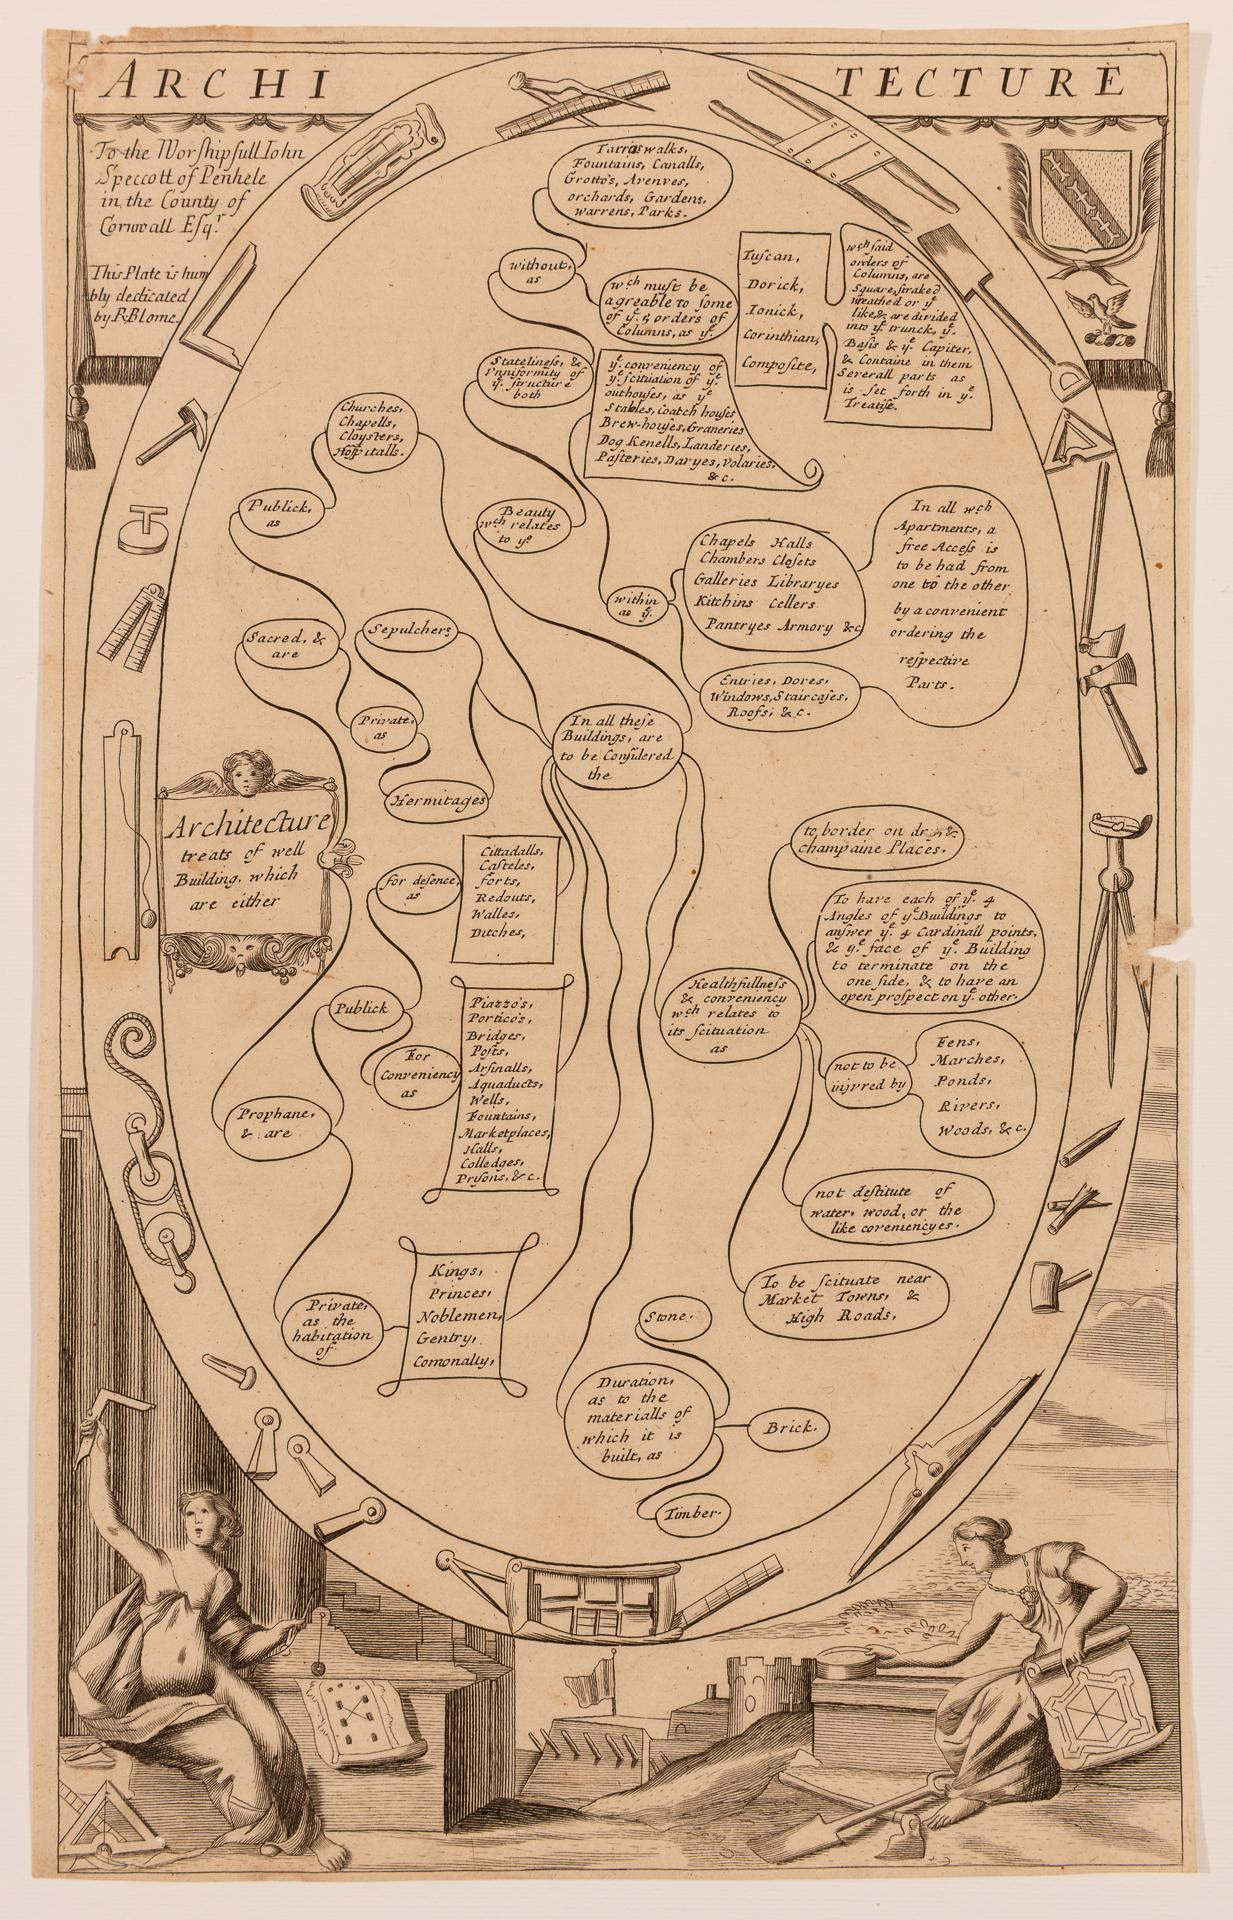 ARCHI
TECTURE
To the Worshipfull Iohn
Speccott of Penhele
in the County of
Cornwall Esqr.
This Plate is hum
bly dedicated
by R: Blome.
Tarras walks,
Fountains, Canalls,
Grotto's, Avenves,
orchards, Gardens,
warrens, Parks.
without,
as
wch. must be
agreable to some
of ye. 5 orders of
Columns, as ye.
Tuscan,
Dorick,
Ionick,
Corinthian,
Composite,
wch said
orders of
Columns, are
Square, straked
wreathed or ye
like, & are divided
into ye. trunck, ye.
Basis & ye. Capiter,
& Containe in them
Severall parts as
is set forth in ye.
Treatise.
Stateliness, &
vniformity of
ye. structure
both
ye. conveniency of
ye scituation of ye.
outhouses, as ye
Stables, Coatch houses
Brew-houses, Graneries
Dog Kenells, Landeries,
Pasteries, Daryes, Volaries,
&c.
Churches,
Chapells,
Cloysters,
Hospitalls.
Publick,
as
Beauty
wch relates
to ye
within
as ye.
Chapels Halls
Chambers Closets
Galleries Libraryes
Kitchins Cellers
Pantryes Armory &c
In all wch
Apartments, a
free Access is
to be had from
one to the other
by a convenient
ordering the
respective
Parts.
Sacred, &
are
Sepulchers
Entries, Dores,
Windows, Staircases,
Roofs, &c.
Private,
as
In all these
Buildings, are
to be Consider'd
the
Hermitages
Architecture
treats of well
Building, which
are either
for defence,
as
Cittadalls,
Casteles,
forts,
Redouts,
Walles,
Ditches,
to border on dry, &
champaine Places.
To have each of ye. 4
Angles of ye Buildings to
answer ye. 4 Cardinall points,
& ye. face of ye. Building
to terminate on the
one side, & to have an
open prospect on ye. other.
Healthfullness
& conveniency
wch relates to
its scituation
as
Publick
For
Conveniency
as
Piazzo's,
Portico's,
Bridges,
Posts,
Arsinalls,
Aquaducts,
Wells,
Fountains,
Marketplaces,
Halls,
Colledges,
Prysons, &c.
not to be
injvred by
Fens,
Marches,
Ponds,
Rivers,
Woods, &c.
Prophane,
& are
not destitute of
water, wood, or the
like coveniencyes.
Private,
as the
habitation
of
Kings,
Princes,
Noblemen,
Gentry,
Comonalty,
To be scituate near
Market Towns, &
High Roads,
Stone.
Duration,
as to the
materialls of
which it is
built, as
Brick.
Timber.